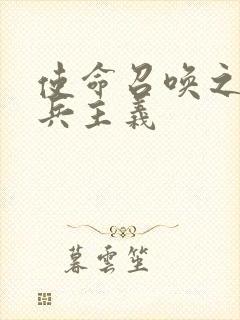 使命召唤之
兵主義
暮雲笙